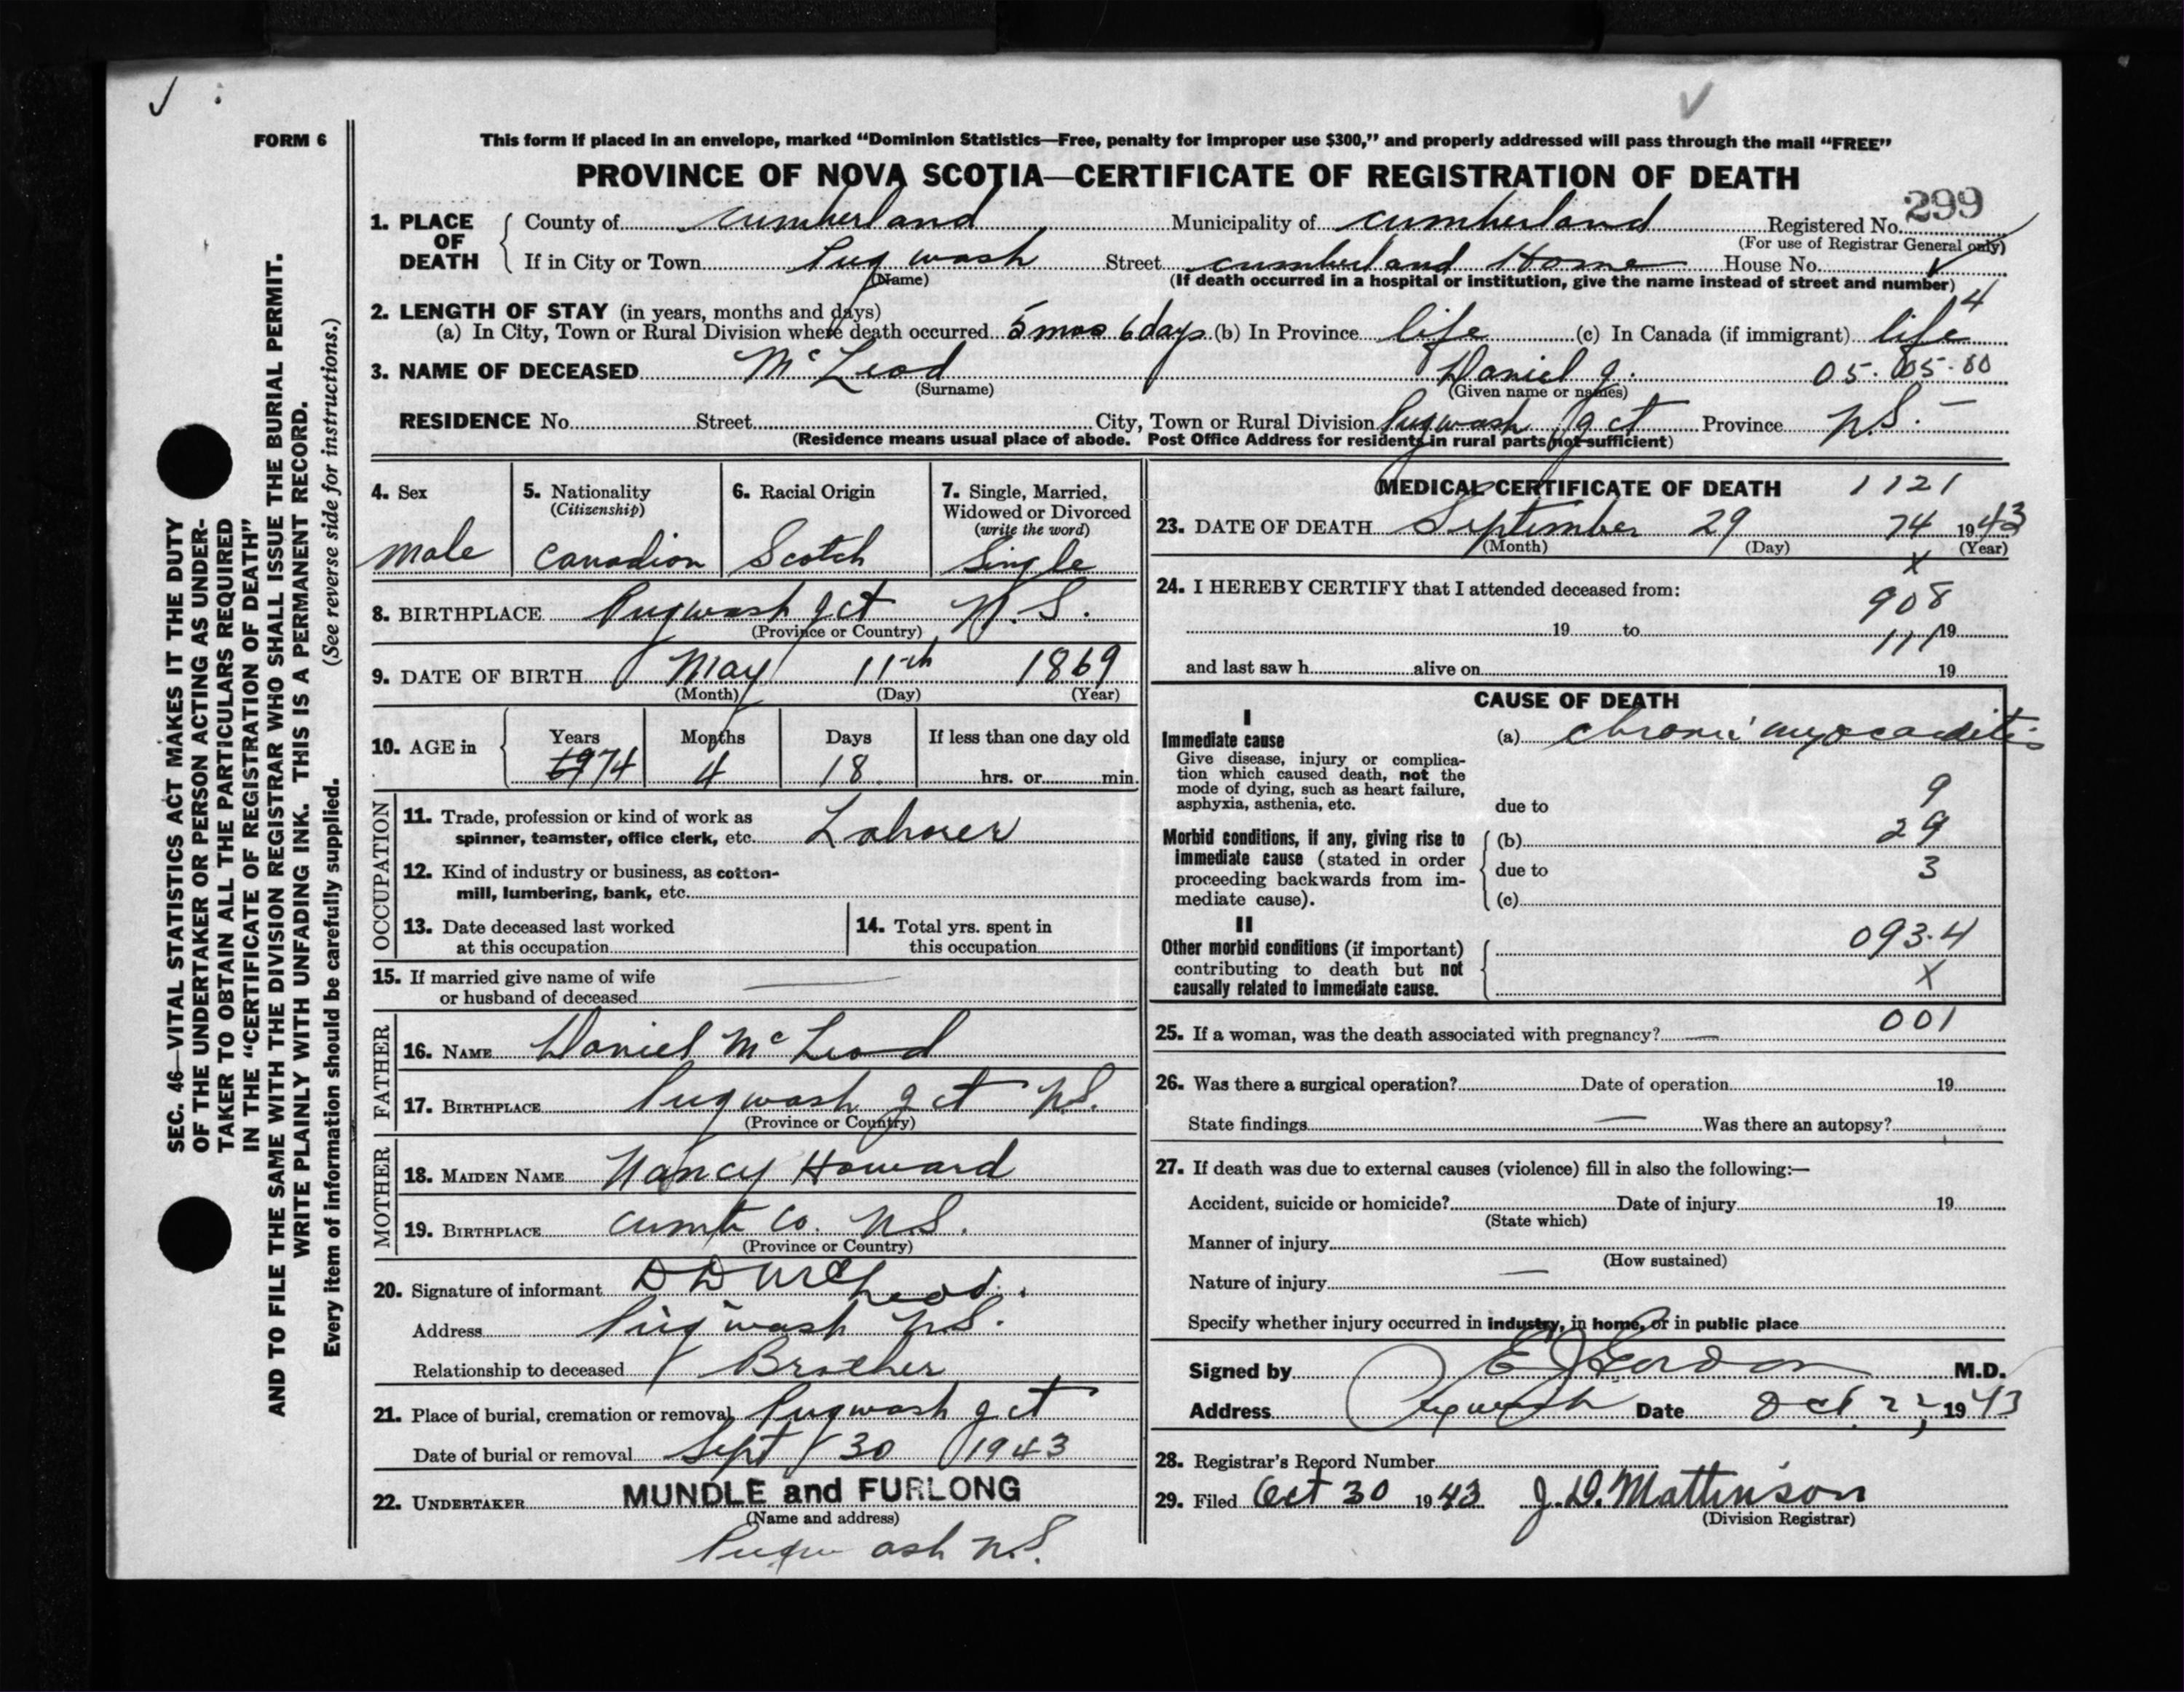 FORM 6
This form if placed in an envelope, marked “Dominion Statistics—Free, penalty for improper use $300,” and properly addressed will pass through the mail “FREE”
PROVINCE OF NOVA SCOTIA—CERTIFICATE OF REGISTRATION OF DEATH
299
1. PLACE OF DEATH
County of Cumberland Municipality of Cumberland Registered No.
(For use of Registrar General only)
If in City or Town Pugwash Street Cumberland Home House No.
(Name) (If death occurred in a hospital or institution, give the name instead of street and number)
4
2. LENGTH OF STAY (in years, months and days)
(a) In City, Town or Rural Division where death occurred 5 mos 6 days (b) In Province life (c) In Canada (if immigrant) life
3. NAME OF DECEASED McLeod Daniel J. 05.
(Surname) (Given name or names)
RESIDENCE No. Street City, Town or Rural Division Pugwash Jct Province N.S.
(Residence means usual place of abode. Post Office Address for residents in rural parts not sufficient)
4. Sex
Male
5. Nationality
(Citizenship)
Canadian
6. Racial Origin
Scotch
7. Single, Married,
Widowed or Divorced
(write the word)
Single
8. BIRTHPLACE Pugwash Jct N.S.
(Province or Country)
9. DATE OF BIRTH May 11th 1869
(Month) (Day) (Year)
10. AGE in
Years Months Days If less than one day old
69 74 4 18 hrs. or min.
OCCUPATION
11. Trade, profession or kind of work as
spinner, teamster, office clerk, etc. Laborer
12. Kind of industry or business, as cotton-
mill, lumbering, bank, etc.
13. Date deceased last worked
at this occupation
14. Total yrs. spent in
this occupation
15. If married give name of wife
or husband of deceased
FATHER
16. NAME Daniel McLeod
17. BIRTHPLACE Pugwash Jct N.S.
(Province or Country)
MOTHER
18. MAIDEN NAME Nancy Howard
19. BIRTHPLACE Cumb Co. N.S.
(Province or Country)
20. Signature of informant D D McLeod.
Address Pugwash N.S.
Relationship to deceased Brother
21. Place of burial, cremation or removal Pugwash Jct
Date of burial or removal Sept 30 1943
22. UNDERTAKER MUNDLE and FURLONG
(Name and address)
Pugwash N.S.
MEDICAL CERTIFICATE OF DEATH 1121
23. DATE OF DEATH September 29 74 1943
(Month) (Day) (Year)
x
24. I HEREBY CERTIFY that I attended deceased from:
908
19 to 19
111
and last saw h alive on 19
CAUSE OF DEATH
I
Immediate cause
Give disease, injury or complica-
tion which caused death, not the
mode of dying, such as heart failure,
asphyxia, asthenia, etc.
(a) chronic myocarditis
9
due to
Morbid conditions, if any, giving rise to
immediate cause (stated in order
proceeding backwards from im-
mediate cause).
29
(b)
due to 3
(c)
II
Other morbid conditions (if important)
contributing to death but not
causally related to immediate cause.
093.4
X
25. If a woman, was the death associated with pregnancy? — 001
26. Was there a surgical operation? Date of operation 19
State findings — Was there an autopsy?
27. If death was due to external causes (violence) fill in also the following:—
Accident, suicide or homicide? Date of injury 19
(State which)
Manner of injury
(How sustained)
Nature of injury —
Specify whether injury occurred in industry, in home, or in public place
Signed by E J Gordon M.D.
Address Pugwash Date Oct. 22, 1943
28. Registrar's Record Number
29. Filed Oct 30 1943 J. D. Mattinson
(Division Registrar)
SEC. 46—VITAL STATISTICS ACT MAKES IT THE DUTY
OF THE UNDERTAKER OR PERSON ACTING AS UNDER-
TAKER TO OBTAIN ALL THE PARTICULARS REQUIRED
IN THE “CERTIFICATE OF REGISTRATION OF DEATH”
AND TO FILE THE SAME WITH THE DIVISION REGISTRAR WHO SHALL ISSUE THE BURIAL PERMIT.
WRITE PLAINLY WITH UNFADING INK. THIS IS A PERMANENT RECORD.
Every item of information should be carefully supplied. (See reverse side for instructions.)